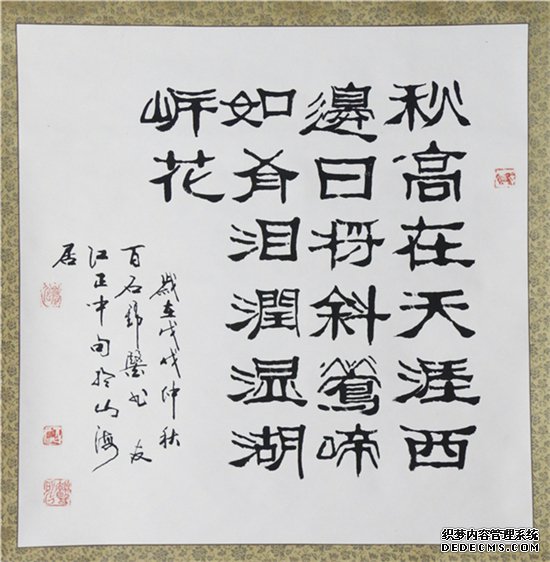 秋高在天涯西
邊日将斜鶯啼
如有泪潤湿湖
岍花
歲在戊戌仲秋
百石 書友
江正中句於山海
居
织梦内容管理系统
DEDECMS.COM